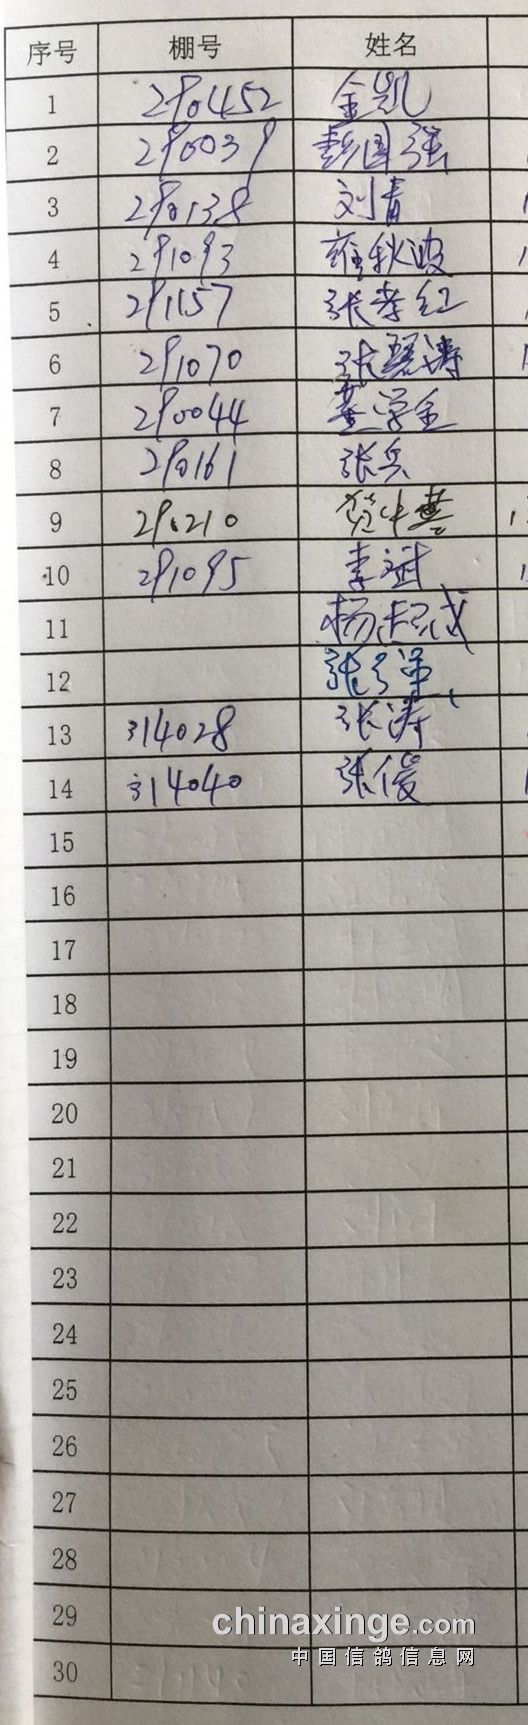 序号 棚号 姓名
1 290452 金凯
2 290039 彭国强
3 290138 刘青
4 291093 雍秋波
5 291157 张孝红
6 291070 张碧涛
7 290044 董学全
8 290161 张兵
9 290210 贺中
10 291095 李斌
11 杨成
12 张
13 314028 张涛
14 314040 张俊
15
16
17
18
19
20
21
22
23
24
25
26
27
28
29
30
chinaxinge.com
中国信鸽信息网